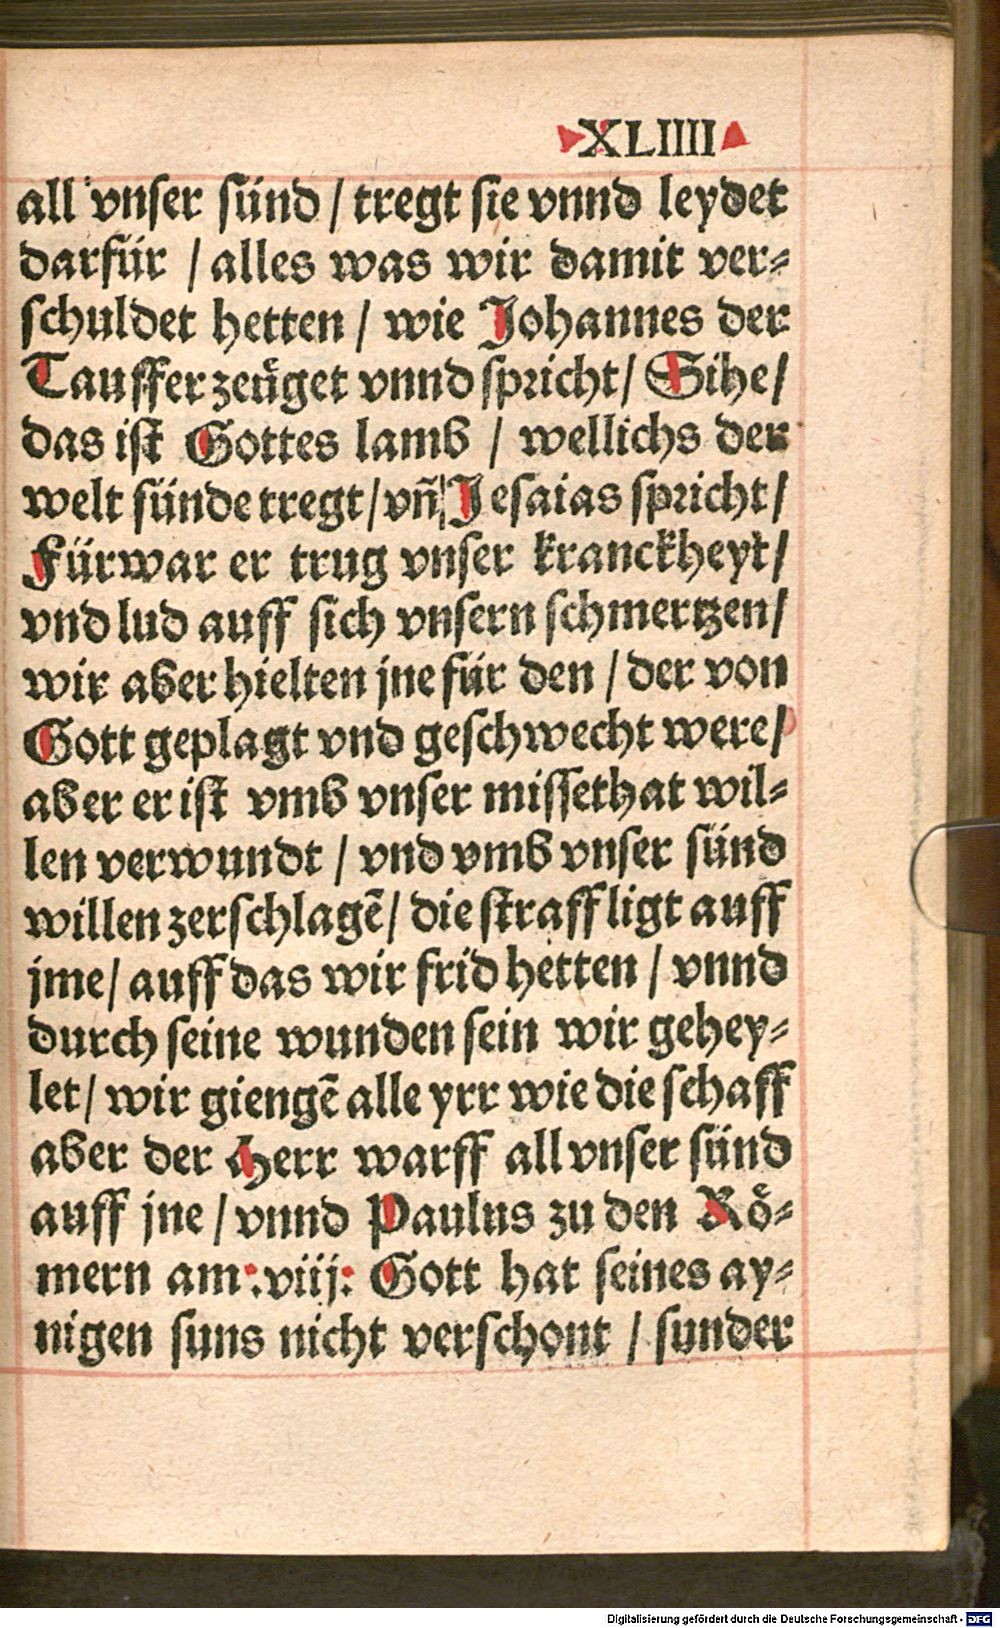 XLIIII
all vnser sünd / tregt sie vnnd leydet
darfür / alles was wir damit ver⸗
schuldet hetten / wie Johannes der
Tauffer zeüget vnnd spricht / Sihe /
das ist Gottes lamb / wellichs der
welt sünde tregt / vn̄ Jesaias spricht /
Fürwar er trug vnser kranckheyt /
vnd lud auff sich vnsern schmertzen /
wir aber hielten jne für den / der von
Gott geplagt vnd geschwecht were /
aber er ist vmb vnser missethat wil⸗
len verwundt / vnd vmb vnser sünd
willen zerschlagē / die straff ligt auff
jme / auff das wir frid hetten / vnnd
durch seine wunden sein wir gehey⸗
let / wir giengē alle yrr wie die schaff
aber der Herr warff all vnser sünd
auff jne / vnnd Paulus zu den Rö⸗
mern am .viij. Gott hat seines ay⸗
nigen suns nicht verschont / sunder
Digitalisierung gefördert durch die Deutsche Forschungsgemeinschaft - DFG